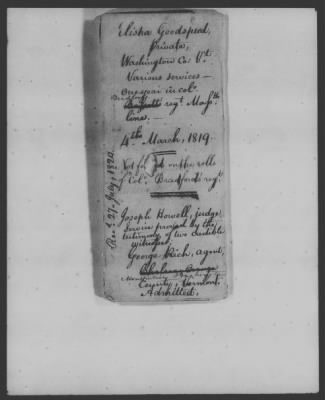 Elisha Goodspead,
Private,
Washington Co: Vt.
Various services —
one year in col.
Bradford's regt. Mass.
line. —
4th March, 1819.
Not found on the rolls
Col. Bradford's regt.
Joseph Howell, judge
Service proved by the
testimony of two credible
witnesses.
George Rich, agent,
Montpelier
County, Vermont.
Admitted.
Rec'd 27. July, 1820.